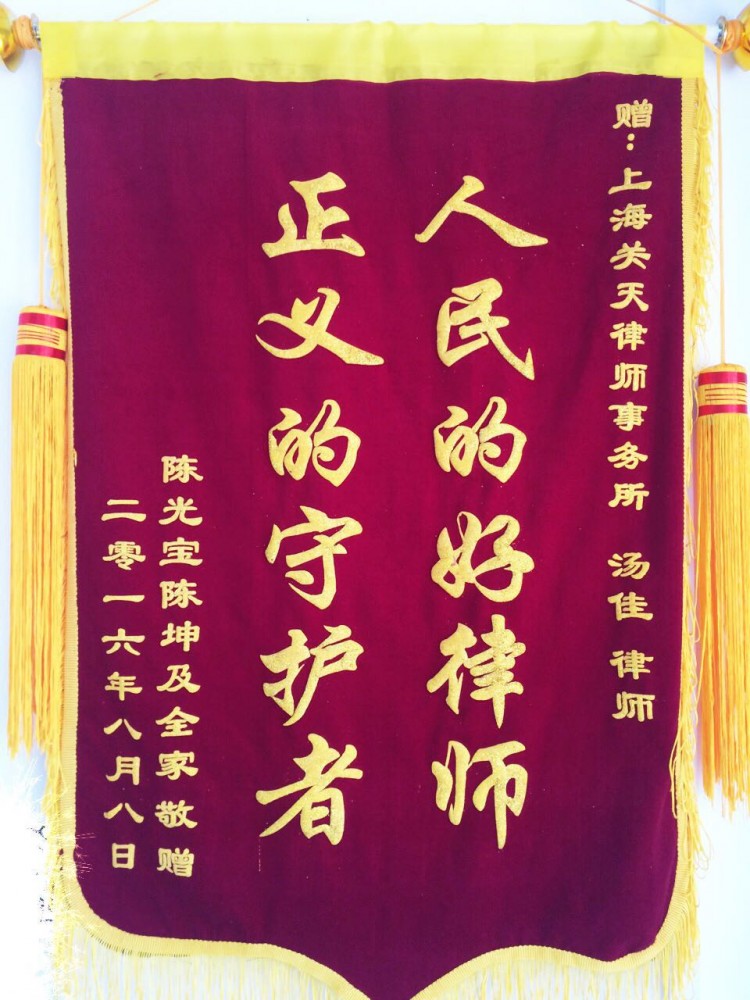 赠：上海关天律师事务所 汤佳 律师
人民的好律师
正义的守护者
陈光宝陈坤及全家敬赠
二零一六年八月八日